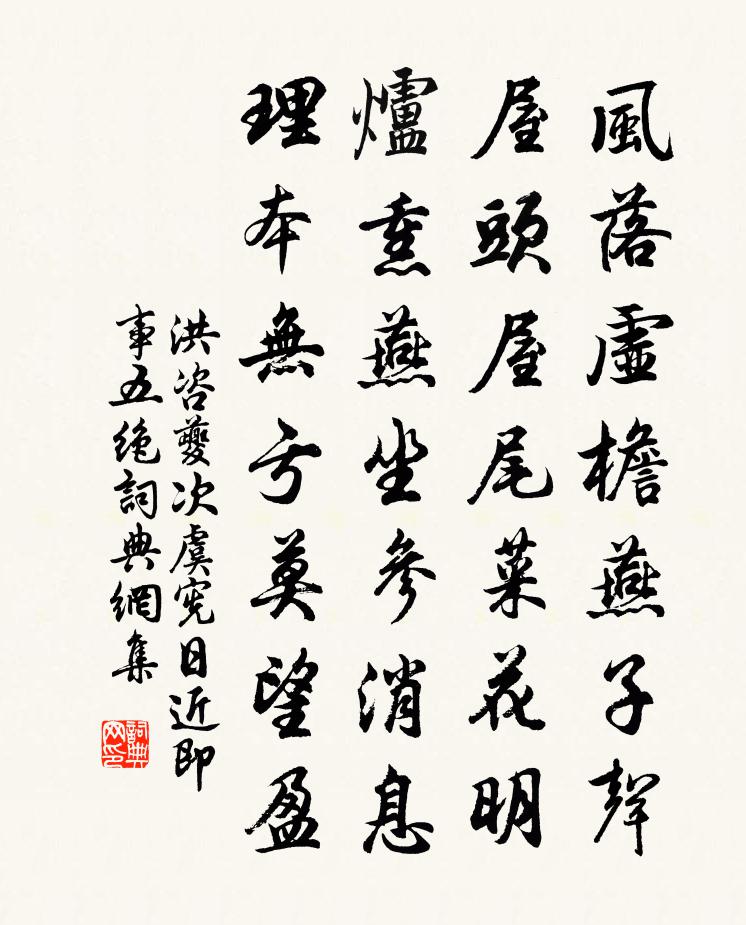 風落虛檐燕子聲
屋頭屋尾菜花明
爐熏燕坐參消息
理本無亏莫望盈
洪咨夔次虞宪日近即
事五绝詞典網集
詞典网印